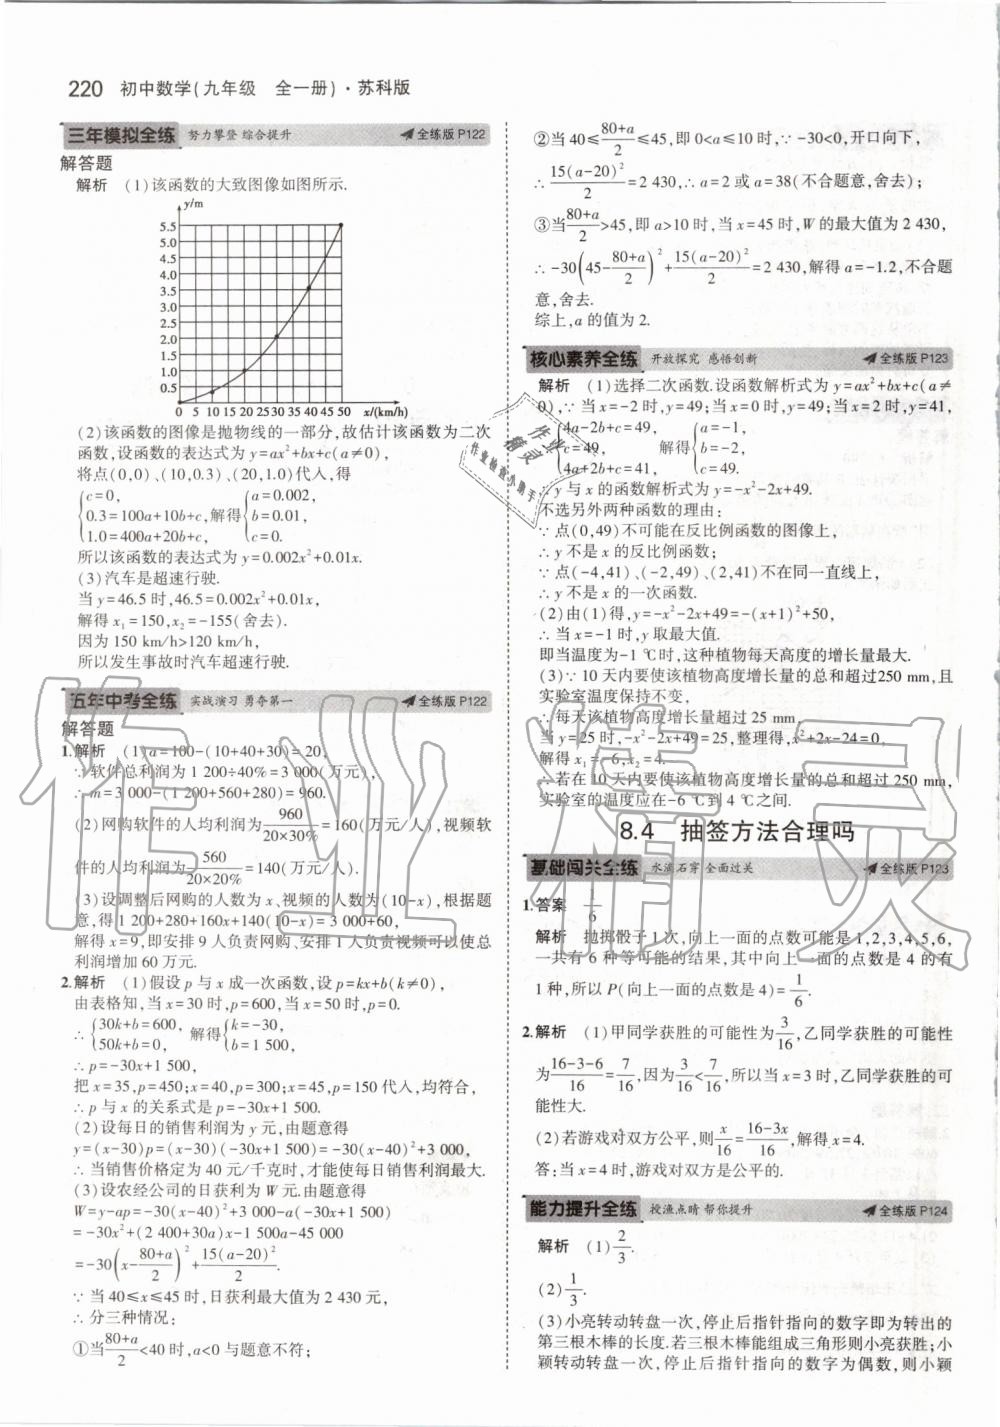 220 初中数学(九年级 全一册)·苏科版
三年模拟全练 努力攀登 综合提升 全练版 P122
解答题
解析 (1)该函数的大致图像如图所示.
y/m
5.5
5.0
4.5
4.0
3.5
3.0
2.5
2.0
1.5
1.0
0.5
0 5 10 15 20 25 30 35 40 45 50 x/(km/h)
(2)该函数的图像是抛物线的一部分,故估计该函数为二次
函数,设函数的表达式为 y=ax²+bx+c(a≠0),
将点(0,0)、(10,0.3)、(20,1.0)代入,得
{c=0, 0.3=100a+10b+c, 1.0=400a+20b+c, 解得{a=0.002, b=0.01, c=0.
所以该函数的表达式为 y=0.002x²+0.01x.
(3)汽车是超速行驶.
当 y=46.5 时,46.5=0.002x²+0.01x,
解得 x₁=150,x₂=-155(舍去).
因为 150 km/h>120 km/h,
所以发生事故时汽车超速行驶.
五年中考全练 实战演习 勇夺第一 全练版 P122
解答题
1.解析 (1)a=100-(10+40+30)=20,
∵软件总利润为 1 200÷40%=3 000(万元),
∴m=3 000-(1 200+560+280)=960.
(2)网购软件的人均利润为960/(20×30%)=160(万元/人),视频软
件的人均利润为560/(20×20%)=140(万元/人).
(3)设调整后网购的人数为 x、视频的人数为(10-x),根据题
意,得 1 200+280+160x+140(10-x)=3 000+60,
解得 x=9,即安排 9 人负责网购、安排 1 人负责视频可以使总
利润增加 60 万元.
2.解析 (1)假设 p 与 x 成一次函数,设 p=kx+b(k≠0),
由表格知,当 x=30 时,p=600,当 x=50 时,p=0,
∴{30k+b=600, 50k+b=0, 解得{k=-30, b=1 500,
∴p=-30x+1 500,
把 x=35,p=450;x=40,p=300;x=45,p=150 代入,均符合,
∴p 与 x 的关系式是 p=-30x+1 500.
(2)设每日的销售利润为 y 元,由题意得
y=(x-30)p=(x-30)(-30x+1 500)=-30(x-40)²+3 000,
∴当销售价格定为 40 元/千克时,才能使每日销售利润最大.
(3)设农经公司的日获利为 W 元.由题意得
W=y-ap=-30(x-40)²+3 000-a(-30x+1 500)
=-30x²+(2 400+30a)x-1 500a-45 000
=-30(x-(80+a)/2)²+15(a-20)²/2.
∵当 40≤x≤45 时,日获利最大值为 2 430 元,
∴分三种情况:
①当(80+a)/2<40 时,a<0 与题意不符;
②当 40≤(80+a)/2≤45,即 0<a≤10 时,∵-30<0,开口向下,
∴15(a-20)²/2=2 430,∴a=2 或 a=38(不合题意,舍去);
③当(80+a)/2>45,即 a>10 时,当 x=45 时,W 的最大值为 2 430,
∴-30(45-(80+a)/2)²+15(a-20)²/2=2 430,解得 a=-1.2,不合题
意,舍去.
综上,a 的值为 2.
核心素养全练 开放探究 感悟创新 全练版 P123
解析 (1)选择二次函数.设函数解析式为 y=ax²+bx+c(a≠
0),∵当 x=-2 时,y=49;当 x=0 时,y=49;当 x=2 时,y=41,
∴{4a-2b+c=49, c=49, 4a+2b+c=41, 解得{a=-1, b=-2, c=49.
∴y 与 x 的函数解析式为 y=-x²-2x+49.
不选另外两种函数的理由:
∵点(0,49)不可能在反比例函数的图像上,
∴y 不是 x 的反比例函数;
∵点(-4,41)、(-2,49)、(2,41)不在同一直线上,
∴y 不是 x 的一次函数.
(2)由(1)得,y=-x²-2x+49=-(x+1)²+50,
∴当 x=-1 时,y 取最大值.
即当温度为-1 ℃时,这种植物每天高度的增长量最大.
(3)∵10 天内要使该植物高度增长量的总和超过250 mm,且
实验室温度保持不变,
∴每天该植物高度增长量超过 25 mm,
当 y=25 时,-x²-2x+49=25,整理得,x²+2x-24=0,
解得 x₁=-6,x₂=4.
∴若在 10 天内要使该植物高度增长量的总和超过 250 mm,
实验室的温度应在-6 ℃到 4 ℃之间.
8.4 抽签方法合理吗
基础闯关全练 水滴石穿 全面过关 全练版 P123
1.答案 1/6
解析 抛掷骰子 1 次,向上一面的点数可能是 1,2,3,4,5,6,
一共有 6 种等可能的结果,其中向上一面的点数是 4 的有
1 种,所以 P(向上一面的点数是 4)=1/6.
2.解析 (1)甲同学获胜的可能性为3/16,乙同学获胜的可能性
为(16-3-6)/16=7/16,因为3/16<7/16,所以当 x=3 时,乙同学获胜的可
能性大.
(2)若游戏对双方公平,则x/16=(16-3x)/16,解得 x=4.
答:当 x=4 时,游戏对双方是公平的.
能力提升全练 授渔点睛 帮你提升 全练版 P124
解析 (1)2/3.
(2)1/3.
(3)小亮转动转盘一次,停止后指针指向的数字即为转出的
第三根木棒的长度.若三根木棒能组成三角形则小亮获胜;小
颖转动转盘一次,停止后指针指向的数字为偶数,则小颖
作业精灵
作业精灵
作业检查小助手